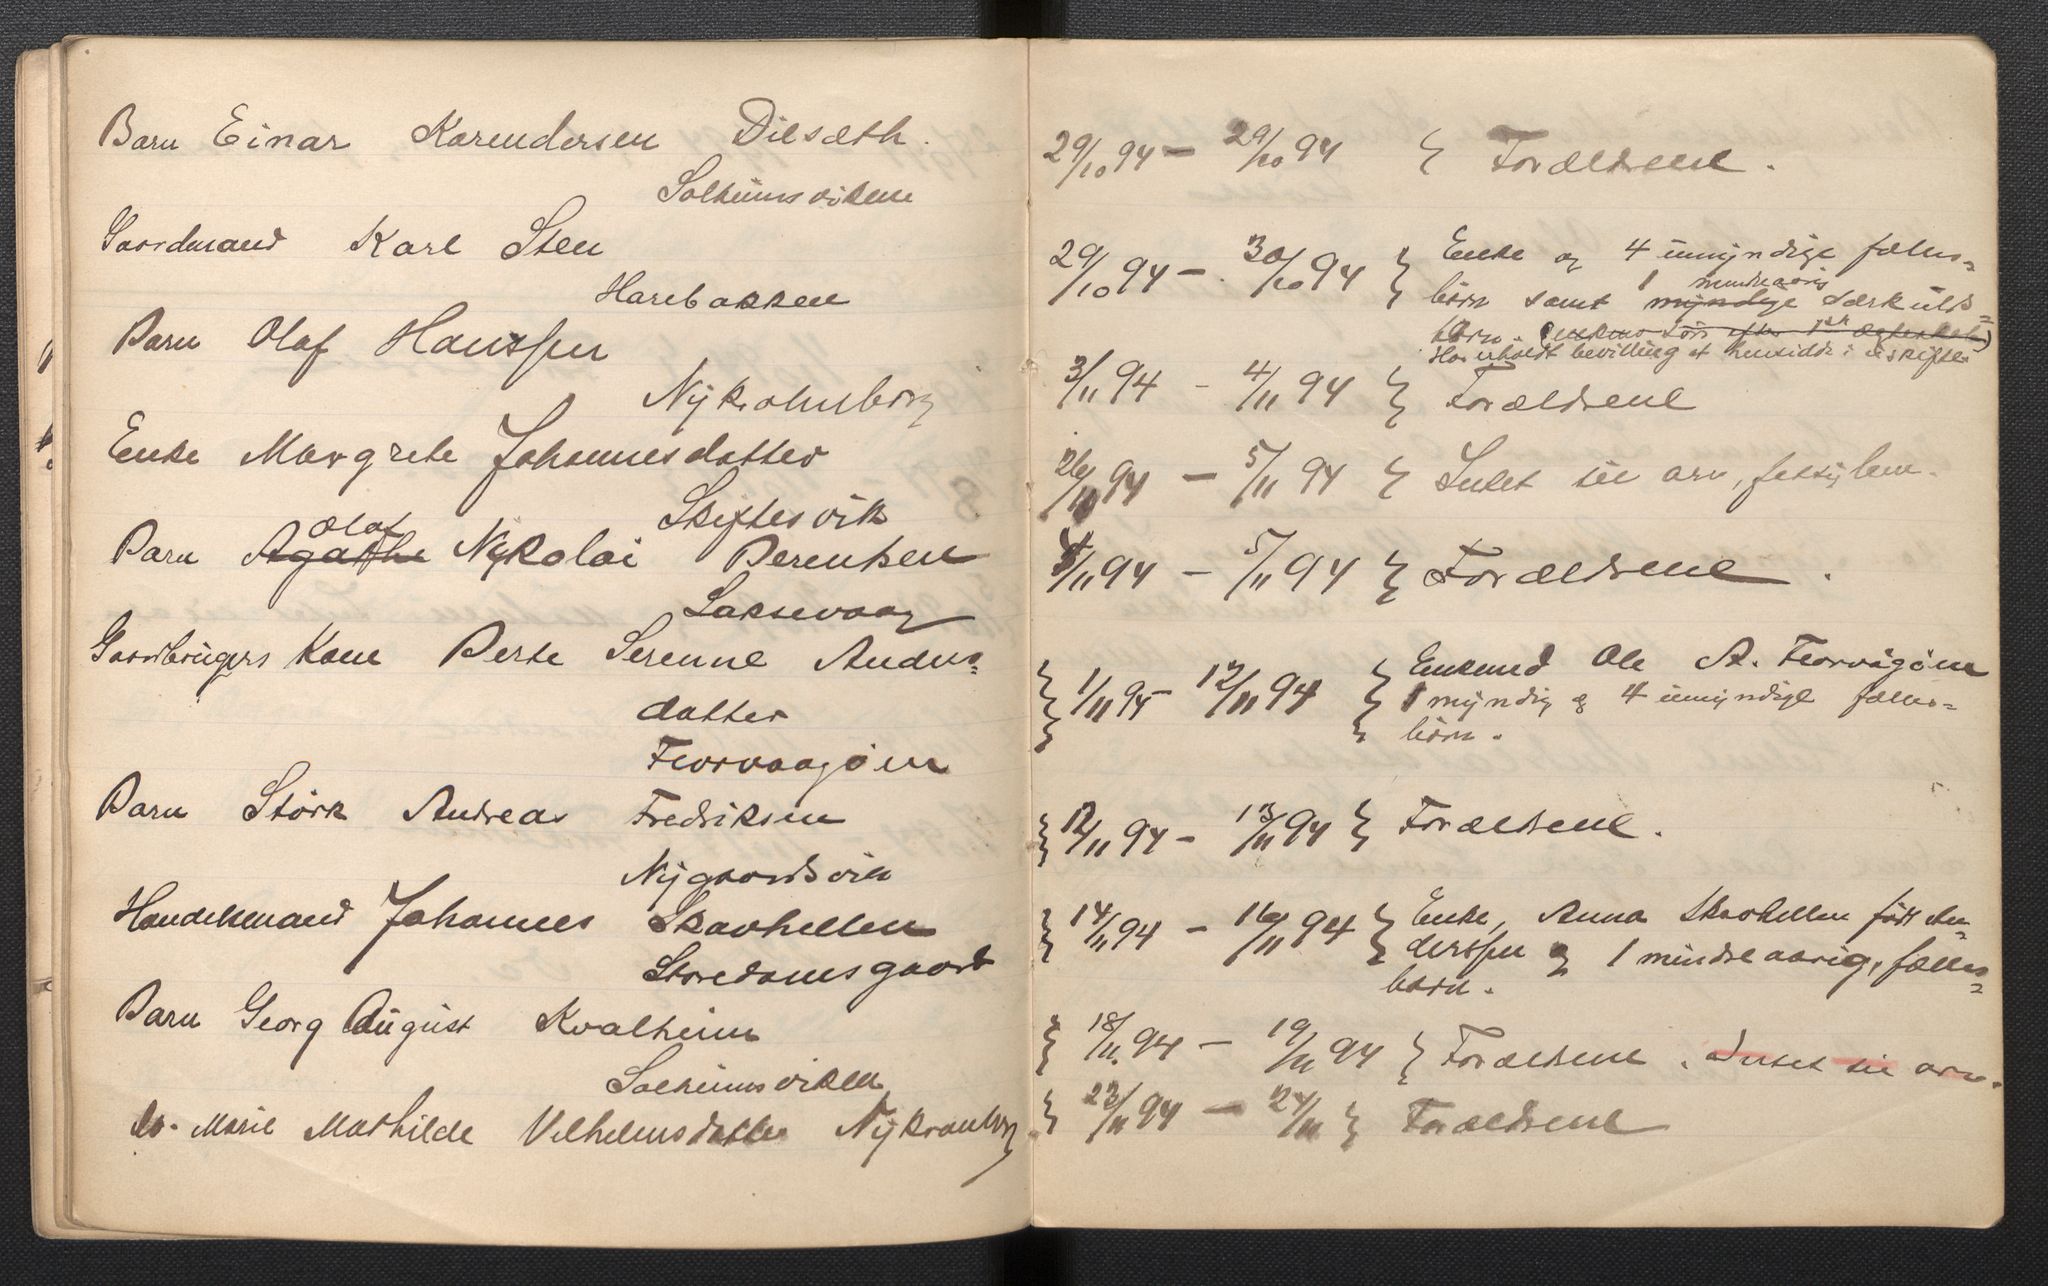 Barn Einar Karendersen Dilsæth.
Solheimsviken
Gaardmand Karl Sten
Harebakken
Barn Olaf Hanssen
Nykrohnborg
Enke Margrete Johannesdatter
Skiftesvik
Olaf
Barn Agathe Nykolai Berentsen
Laksevaag
Gaardbrugers Kone Berte Serenne Anders=
datter
Barn Størk Andreas Fredriksen
Nygaardsvik
Handelsmand Johannes Skarhellen
Storedamsgaard
Barn Georg August Kvalheim
Solheimsviken
do. Marie Mathilde Vilhelmsdatter Nykronborg
29/10 94 – 29/10 94 } Forældrene.
29/10 94 – 30/10 94 } Enke og 4 umyndige fælles=
1 mindreaarig
börn samt myndige særkulds=
barn.
Har erholdt bevilling at hensidde i uskiftet
3/11 94 – 4/11 94 } Forældrene
26/10 94 – 5/11 94 } Intet til arv, fattiglem.
4/11 94 – 5/11 94 } Forældrene.
} 1/11 94 – 12/11 94 } Enkemd Ole A.
1 myndig og 4 umyndige fælles=
börn.
} 12/11 94 – 13/11 94 } Forældrene.
} 14/11 94 – 16/11 94 } Enke, Anna Skarhellen født An=
derssen og 1 mindreaarig fælles=
barn.
} 18/11 94 – 19/11 94 } Forældrene. Intet til arv.
} 23/11 94 – 24/11 } Forældrene